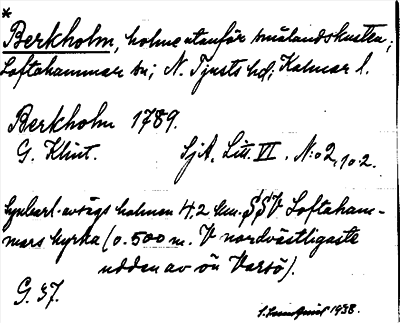 *
Berkholm, holme utanför smålandskusten;
Loftahammar sn; N. Tjusts hd; Kalmar l.
Berkholm 1789.
G. Klint. SjA, Litt. VI. N:o 2, 10 2.
Synbarl. avsågs holmen 4,2 km. SSV Loftaham-
mars kyrka (o. 500 m. V nordvästligaste
udden av ön Varsö).
G. 37.
1938.